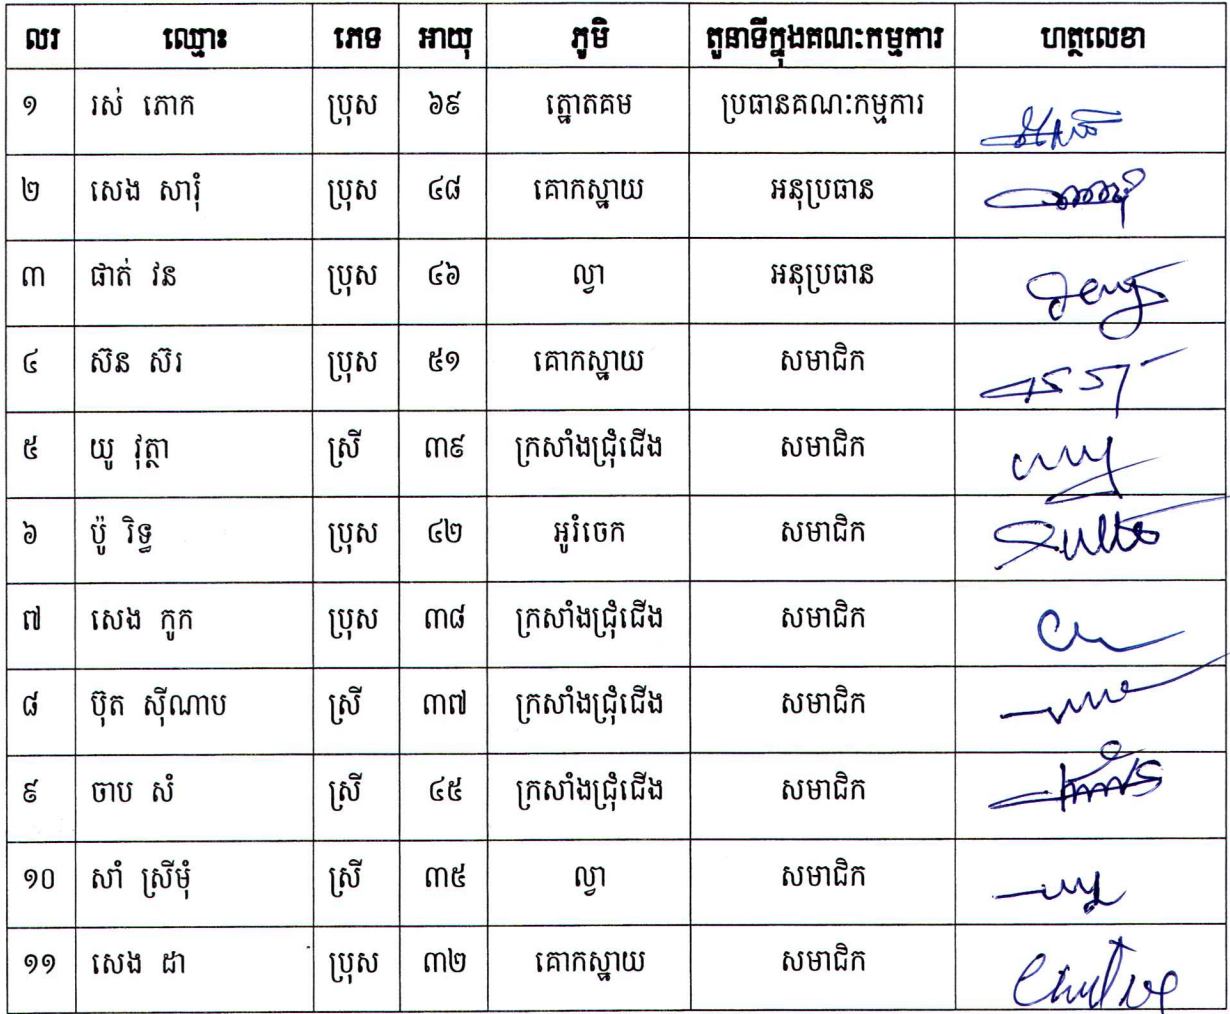 លរ ឈ្មោះ ភេទ អាយុ ភូមិ តួនាទីក្នុងគណៈកម្មការ ហត្ថលេខា
១ រស់ ភោក ប្រុស ៦៩ ត្នោតគម ប្រធានគណៈកម្មការ
២ សេង សារុំ ប្រុស ៤៨ គោកស្វាយ អនុប្រធាន
៣ ផាត់ វន ប្រុស ៤៦ ល្វា អនុប្រធាន
៤ ស៊ន ស៊រ ប្រុស ៥១ គោកស្វាយ សមាជិក
៥ យូ វុត្ថា ស្រី ៣៩ ក្រសាំងជ្រុំជើង សមាជិក
៦ ប៉ូ រិទ្ធ ប្រុស ៤២ អូរំចេក សមាជិក
៧ សេង កូក ប្រុស ៣៨ ក្រសាំងជ្រុំជើង សមាជិក
៨ ប៊ុត ស៊ីណាប ស្រី ៣៧ ក្រសាំងជ្រុំជើង សមាជិក
៩ ចាប សំ ស្រី ៤៥ ក្រសាំងជ្រុំជើង សមាជិក
១០ សាំ ស្រីមុំ ស្រី ៣៥ ល្វា សមាជិក
១១ សេង ដា ប្រុស ៣២ គោកស្វាយ សមាជិក